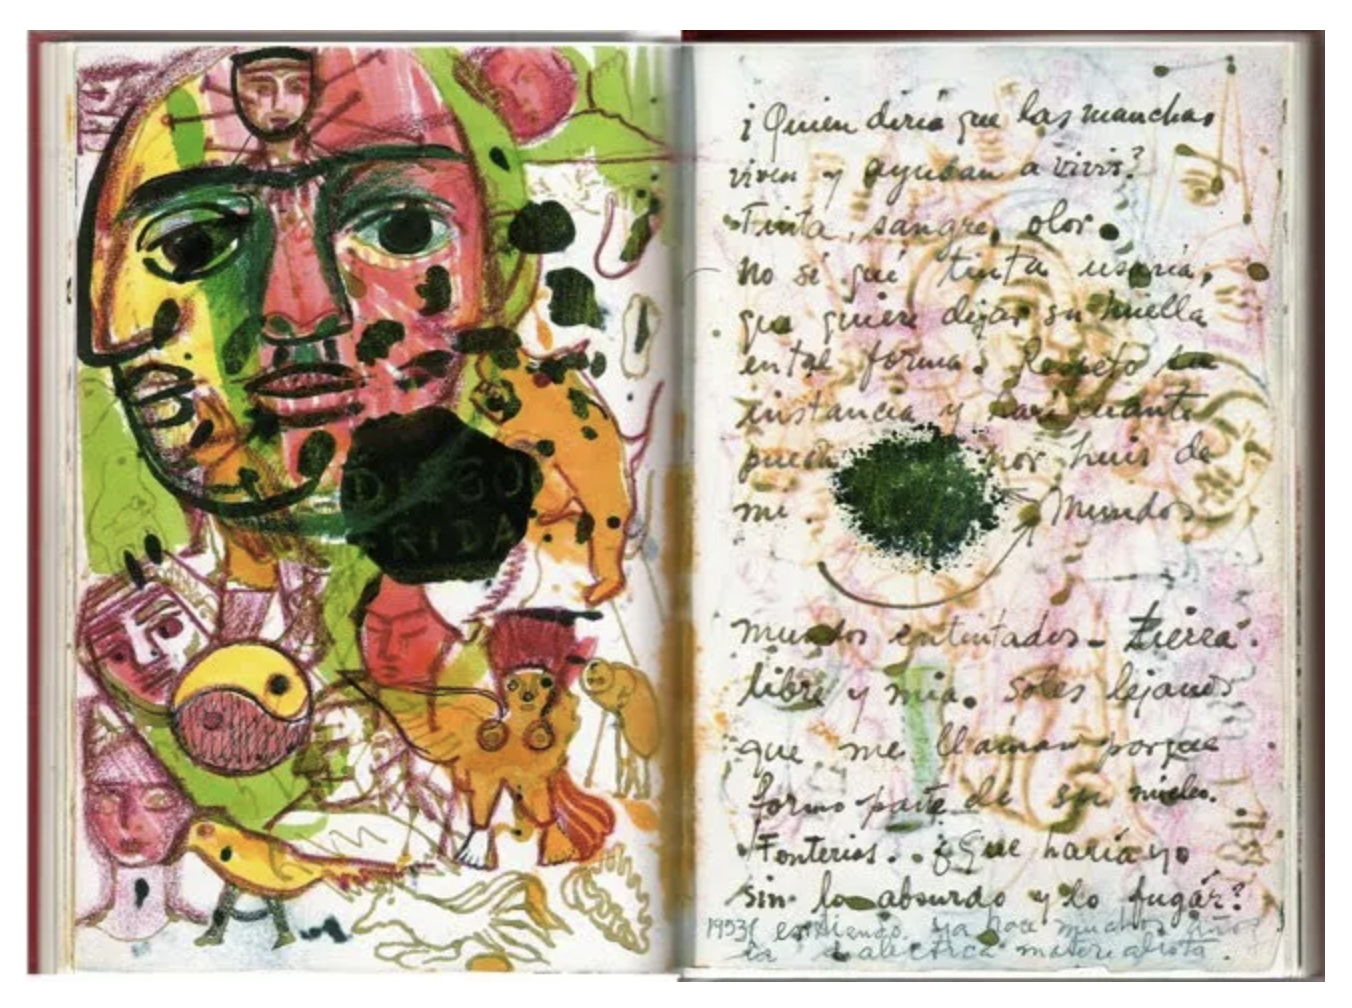 DIEGO
FRIDA
¡Quien diria que las manchas
viven y ayudan a vivir?
Tinta, sangre, olor.
no sé qué tinta usaria,
que quiere dejar su huella
en tal forma. Respeto su
instancia y haré cuanto
pueda por huir de
mi.
Mundos
mundos entintados - tierra
libre y mia. Soles lejanos
que me llaman porque
formo parte de su núcleo.
Tonterias.. ¿Que haria yo
sin lo absurdo y lo fugáz?
1953 entiendo ya hace muchos años
la dialectica materialista.